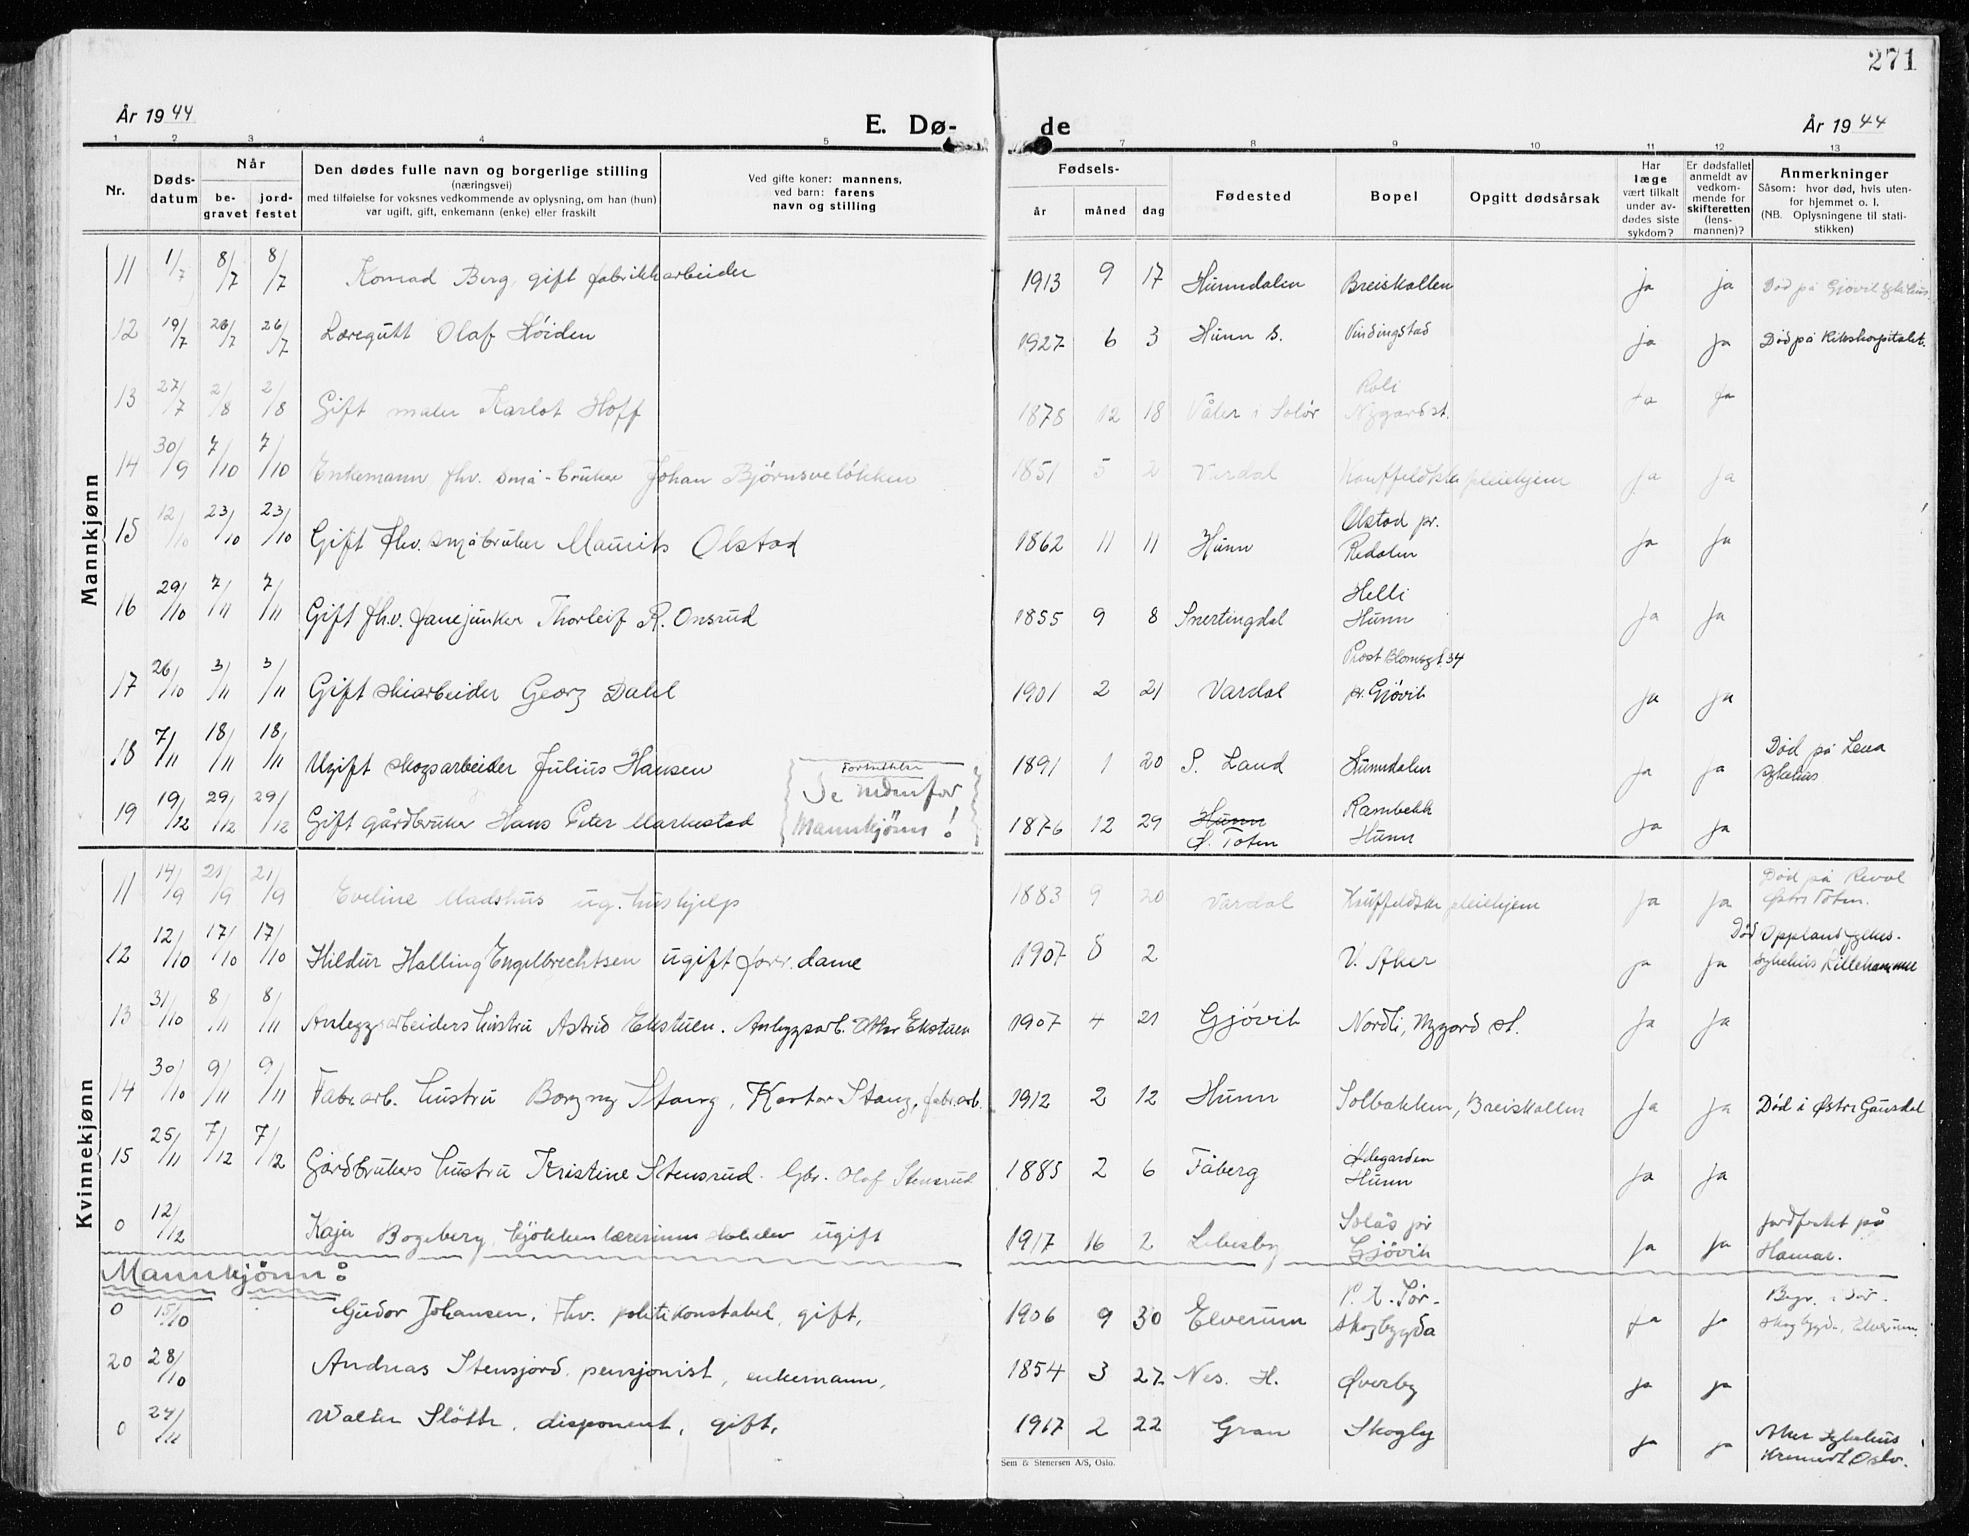 271
År 1944
E. Dø-
de
År 1944
1 2 3 4 5 7 8 9 10 11 12 13
Nr.
Døds-
datum
Når
be-
gravet
jord-
festet
Den dødes fulle navn og borgerlige stilling
(næringsvei)
med tilføielse for voksnes vedkommende av oplysning, om han (hun)
var ugift, gift, enkemann (enke) eller fraskilt
Ved gifte koner: mannens,
ved barn: farens
navn og stilling
Fødsels-
år måned dag
Fødested
Bopel
Opgitt dødsårsak
Har
læge
vært tilkalt
under av-
dødes siste
sykdom?
Er dødsfallet
anmeldt av
vedkom-
mende for
skifteretten
(lens-
mannen)?
Anmerkninger
Såsom: hvor død, hvis uten-
for hjemmet o. l.
(NB. Oplysningene til stati-
stikken)
Mannkjønn
11 1/7 8/7 8/7 Konrad Berg, gift fabrikkarbeider 1913 9 17 Hunndalen Breiskallen ja ja Død på Gjøvik sykehus.
12 19/7 26/7 26/7 Læregutt Olaf Høiden 1927 6 3 Hunn s. Vindingstad ja ja Død på Rikshospitalet.
13 27/7 2/8 2/8 Gift maler Karlot Hoff 1878 12 18 Våler i Solør Roli
Nygard st. ja ja
14 30/9 7/10 7/10 Enkemann fhv. små-bruker Johan Bjørnsveløkken 1851 5 2 Vardal Kauffeldtske pleiehjem ja ja
15 12/10 23/10 23/10 Gift fhv. småbruker Maurits Olstad 1862 11 11 Hunn Olstad pr.
Redalen ja ja
16 29/10 7/11 7/11 Gift fhv. fanejunker Thorleif R. Onsrud 1855 9 8 Snertingdal Helli
Hunn ja ja
17 26/10 3/11 3/11 Gift skiarbeider Georg Dahl 1901 2 21 Vardal Prost Blomsgt. 34
pr. Gjøvik ja ja
18 7/11 18/11 18/11 Ugift skogsarbeider Julius Hansen 1891 1 20 S. Land Hunndalen ja ja Død på Lena
sykehus
19 19/12 29/12 29/12 Gift gårdbruker Hans Peter Markestad 1876 12 29 Hunn
Ø. Toten Rambekk
Hunn ja ja
Fortsettelse
Se nedenfor
Mannkjønn!
Kvinnekjønn
11 14/9 21/9 21/9 Eveline Madshus ug. hushjelp 1883 9 20 Vardal Kauffeldtske pleiehjem ja ja Død på Reval
Østre Toten.
12 12/10 17/10 17/10 Hildur Halling Engelbrechtsen ugift forr. dame 1907 5 2 V. Aker ja ja Død Oppland fylkes-
sykehus Lillehammer
13 31/10 8/11 8/11 Anleggsarbeiders hustru Astrid Ekstuen. Anleggsarb. Ottar Ekstuen 1907 4 21 Gjøvik Nordli, Nygard st. ja ja
14 30/10 9/11 9/11 Fabr.arb. hustru Borgny Stang, Kastor Stang, fabr.arb. 1912 2 12 Hunn Solbakken, Breiskallen ja ja Død i Østre Gausdal
15 25/11 7/12 7/12 Gårdbrukers hustru Kristine Stensrud. Gbr. Olaf Stensrud 1885 2 6 Fåberg Ødegarden
Hunn ja ja
0 12/12 Kaja Bogeberg, ugift 1917 16 2 Lebesby Solås pr
Gjøvik ja ja Jordfestet på
Hamar.
Mannkjønn:
0 15/10 Gudor Johansen, Fhv. politikonstabel, gift, 1906 9 30 Elverum P. A. Sør-
skogbygda ja ja Begr. i Sør-
skogbygda, Elverum.
20 28/10 Andreas Stensjord, pensjonist, enkemann, 1854 3 27 Nes. H. Øverby ja ja
0 24/11 Walter Slåtte, disponent, gift, 1917 2 22 Gran Skogly ja ja Aker sykehus
Oslo.
Sem & Stenersen A/S, Oslo.